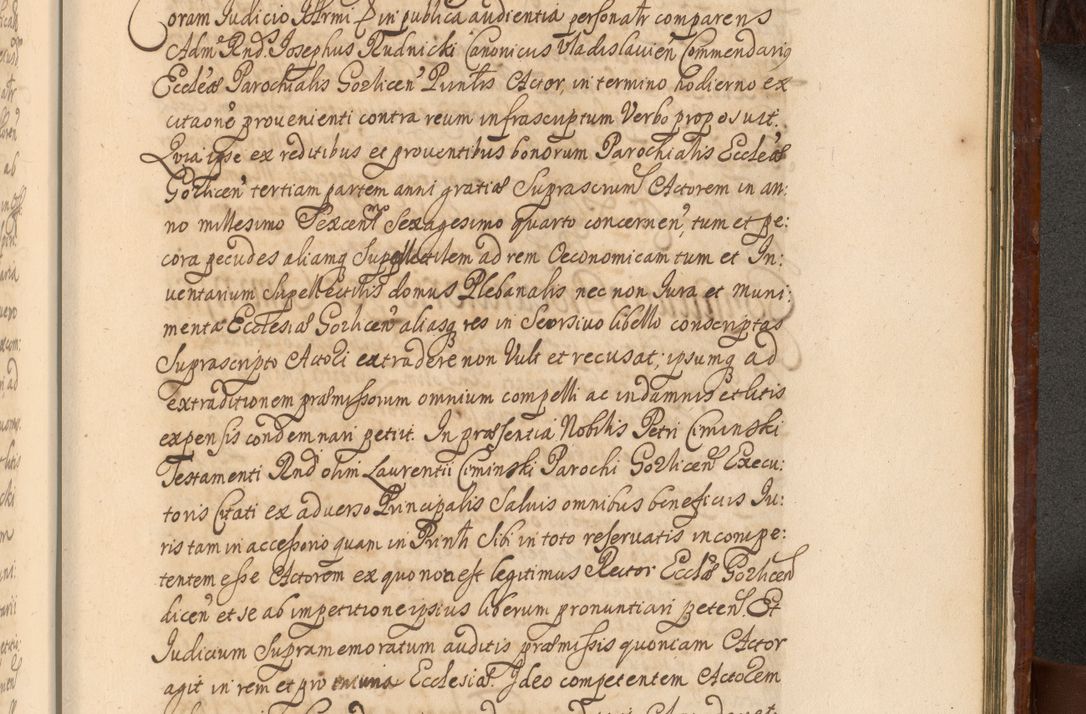 Coram Judicio Illrmi D in publica audientia personalr comparens
Adm Rnds Josephus Rudnicki Canonicus Vladislavien Commendarius
Eccleae Parochialis Gorlicen Prntis Actor, in termino hodierno ex
citaone provenienti contra reum infrascriptum Verbo proposuit.
Quia ipse ex reditibus et proventibus bonorum Parochialis Eccleae
Gorlicen tertiam partem anni gratiae Suprascrum Actorem in an:
no millesimo Sexcenmo Sexagesimo quarto concernen, tum et pe:
cora pecudes aliamq Suppellectilem ad rem Oeconomicam tum et In:
ventarium Supellectilis domus Plebanalis nec non Jura et muni:
menta Ecclesiae Gorlicen aliasq res in Seorsivo libello conscriptas
Suprascripto Actori extradere non Vult et recusat, ipsumq ad
extraditionem praemissorum omnium compelli ac in damnis et litis
expensis condemnari petiit. In praesentia Nobilis Petri Ciminski
Testamenti Rnd olim Laurentii Ciminski Parochi Gorlicen Execu:
toris Citati ex adverso Principalis Salvis omnibus beneficiis Ju:
ris tam in accessorio quam in Prinli Sibi in toto reservatis incompe:
tentem esse Actorem ex quo non est legitimus Rector Eccleae Gorlicen
dicen et se ab impetitione ipsius liberum pronuntiari peten Et
Judicium Supramemoratum auditis praemissis quoniam Actor
agit in rem et pro Ecclesiae. Ideo competentem Actorem